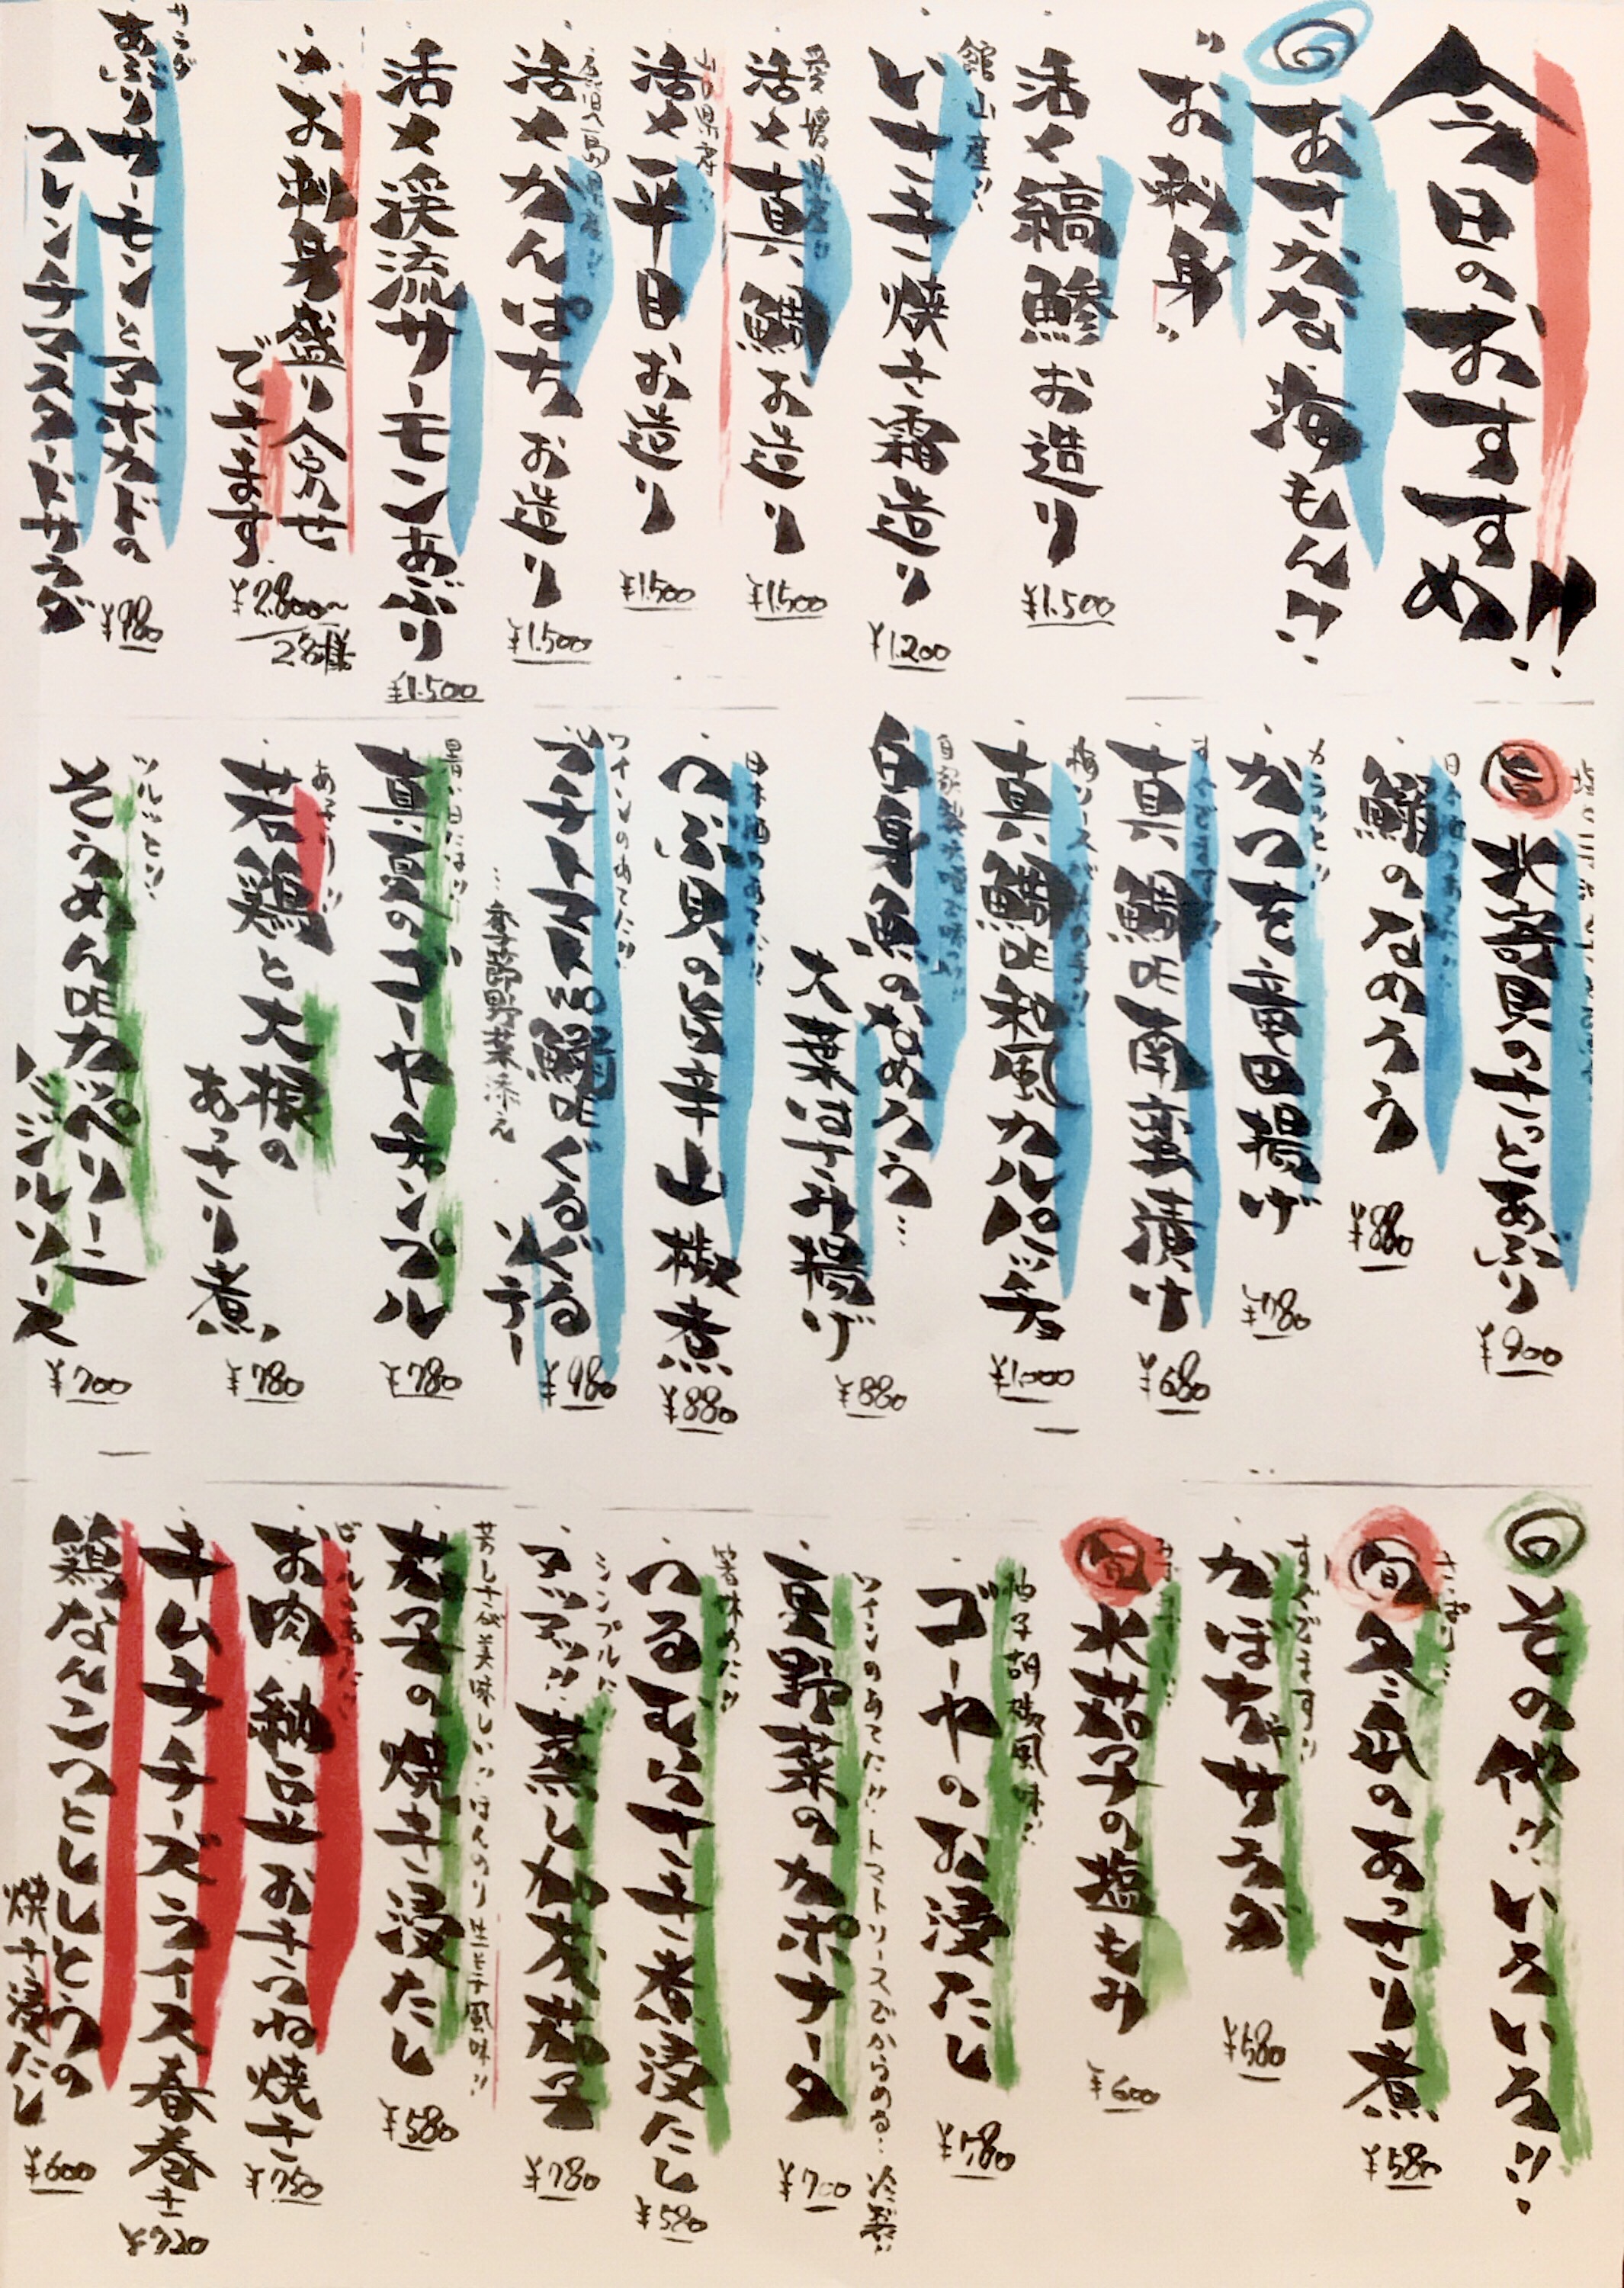 今日のおすすめ!!
おさかな海もん!!
お刺身
活〆縞鯵お造り
¥1.500
館山産!!
いさき焼き霜造り
¥1.200
愛媛県産!!
活〆真鯛お造り
¥1.500
山口県産!!
活〆平目お造り
¥1.500
活〆かんぱちお造り
¥1.500
活〆渓流サーモンあぶり
¥1.500
お刺身盛り合わせ
できます
¥2.800〜
2名様
サラダ
炙りサーモンとアボカドの
フレンチマスタードサラダ
¥980
旬
北寄貝のさっとあぶり
¥900
鯵のなめろう
¥880
カラッと!!
かつを竜田揚げ
¥780
真鯛の南蛮漬け
¥680
真鯛の和風カルパッチョ
¥1000
白身魚のなめろう…
大葉はさみ揚げ
¥880
つぶ貝の旨辛山椒煮
¥880
ワインのあてに!!
プチトマトと鯛のぐるぐる
ソテー
…季節野菜添え
¥980
暑い日には!!
真夏のゴーヤチャンプル
¥780
あっさり!!
若鶏と大根の
あっさり煮
¥780
そうめんのカペリーニ
バジルソース
¥700
その他!! いろいろ!!
さっぱり!!
旬
冬瓜のあっさり煮
¥580
すぐできます!!
かぼちゃサラダ
¥580
旬
水茄子の塩もみ
¥600
柚子胡椒風味!!
ゴーヤのお浸たし
¥580
ワインのあてに!! トマトソースでからめる…
夏野菜のカポナータ
¥700
つるむらさき煮浸たし
¥580
シンプルに!!
アツアツ!! 蒸し加茂茄子
¥780
蒸し茄子美味しい!! ほんのり生姜風味!!
茄子の焼き浸たし
¥580
ビールのあてに!!
お肉納豆おきつね焼き
¥750
キムチチーズライス春巻き
¥720
鶏なんこつとししとうの
焼き浸たし
¥600